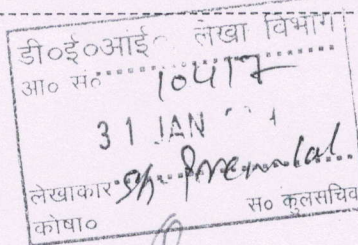 डी०ई०आई० लेखा विभाग
आ० सं० 10417
31 JAN
लेखाकार Sh. Premlal
कोषा० स० कुलसचिव